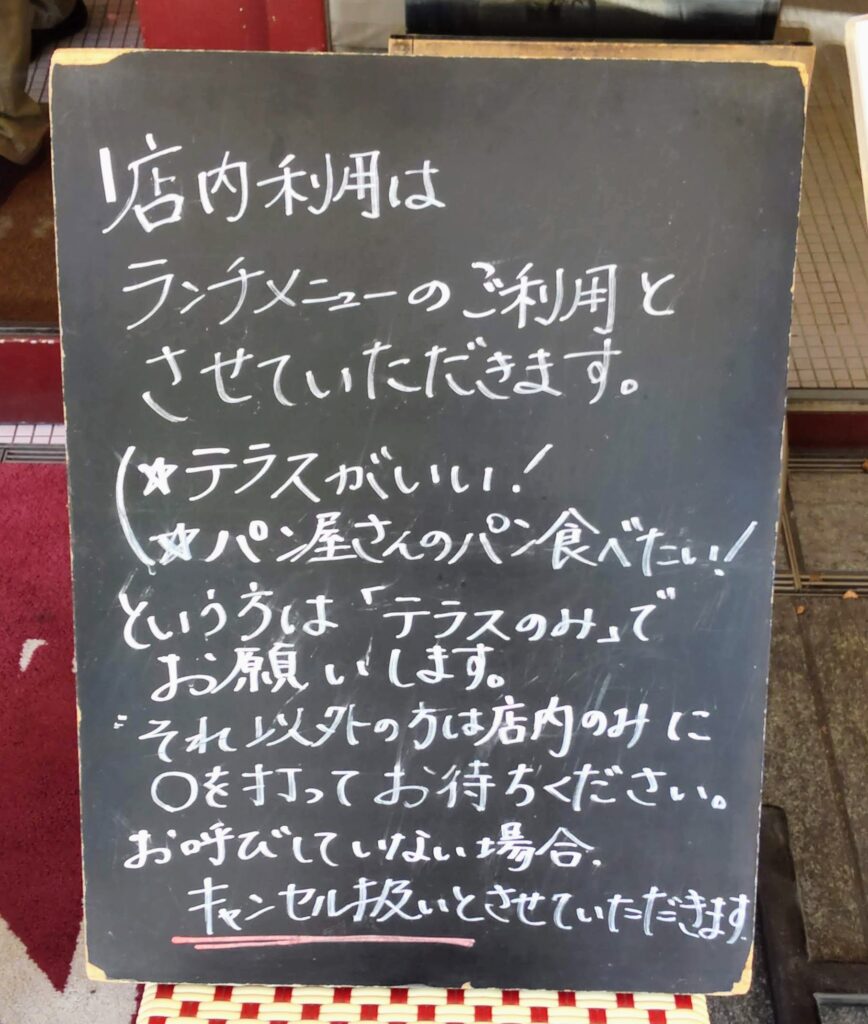 店内利用は
ランチメニューのご利用と
させていただきます。
(☆テラスがいい!
☆パン屋さんのパン食べたい!
という方は「テラスのみ」で
お願いします。
それ以外の方は店内のみに
○を打ってお待ちください。
お呼びしていない場合、
キャンセル扱いとさせていただきます